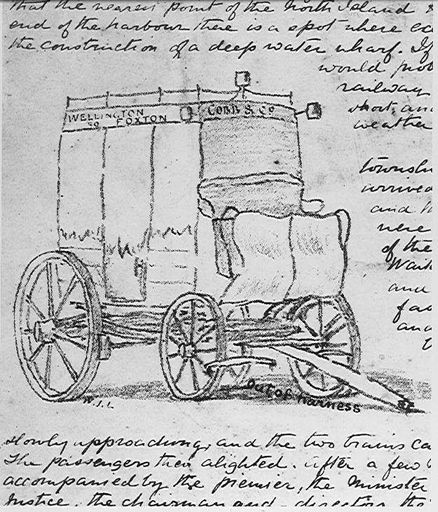 that the nearest point of the North Island &
end of the harbour there is a spot where
the construction of a deep water wharf. If
would
railway
short and
weather
WELLINGTON
TO FOXTON
COBB & Co
township
arrived
and
were
of the
and
and
W.J.L.
Out of harness
slowly approaching, and the two trains
The passengers then alighted. After a few
accompanied by the premier, the Minister
Justice, the chairman and directors, the